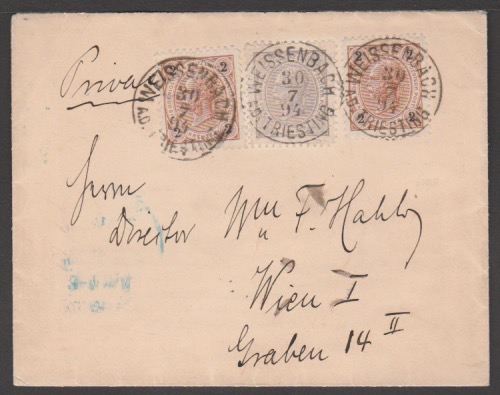 Privat
WEISSENBACH
30
7
94
a.d. TRIESTING
2
WEISSENBACH
30
7
94
a.d. TRIESTING
2
WEISSENBACH
30
7
94
a.d. TRIESTING
2
Herrn
Director F. Hahlo
Wien I
Graben 14 II